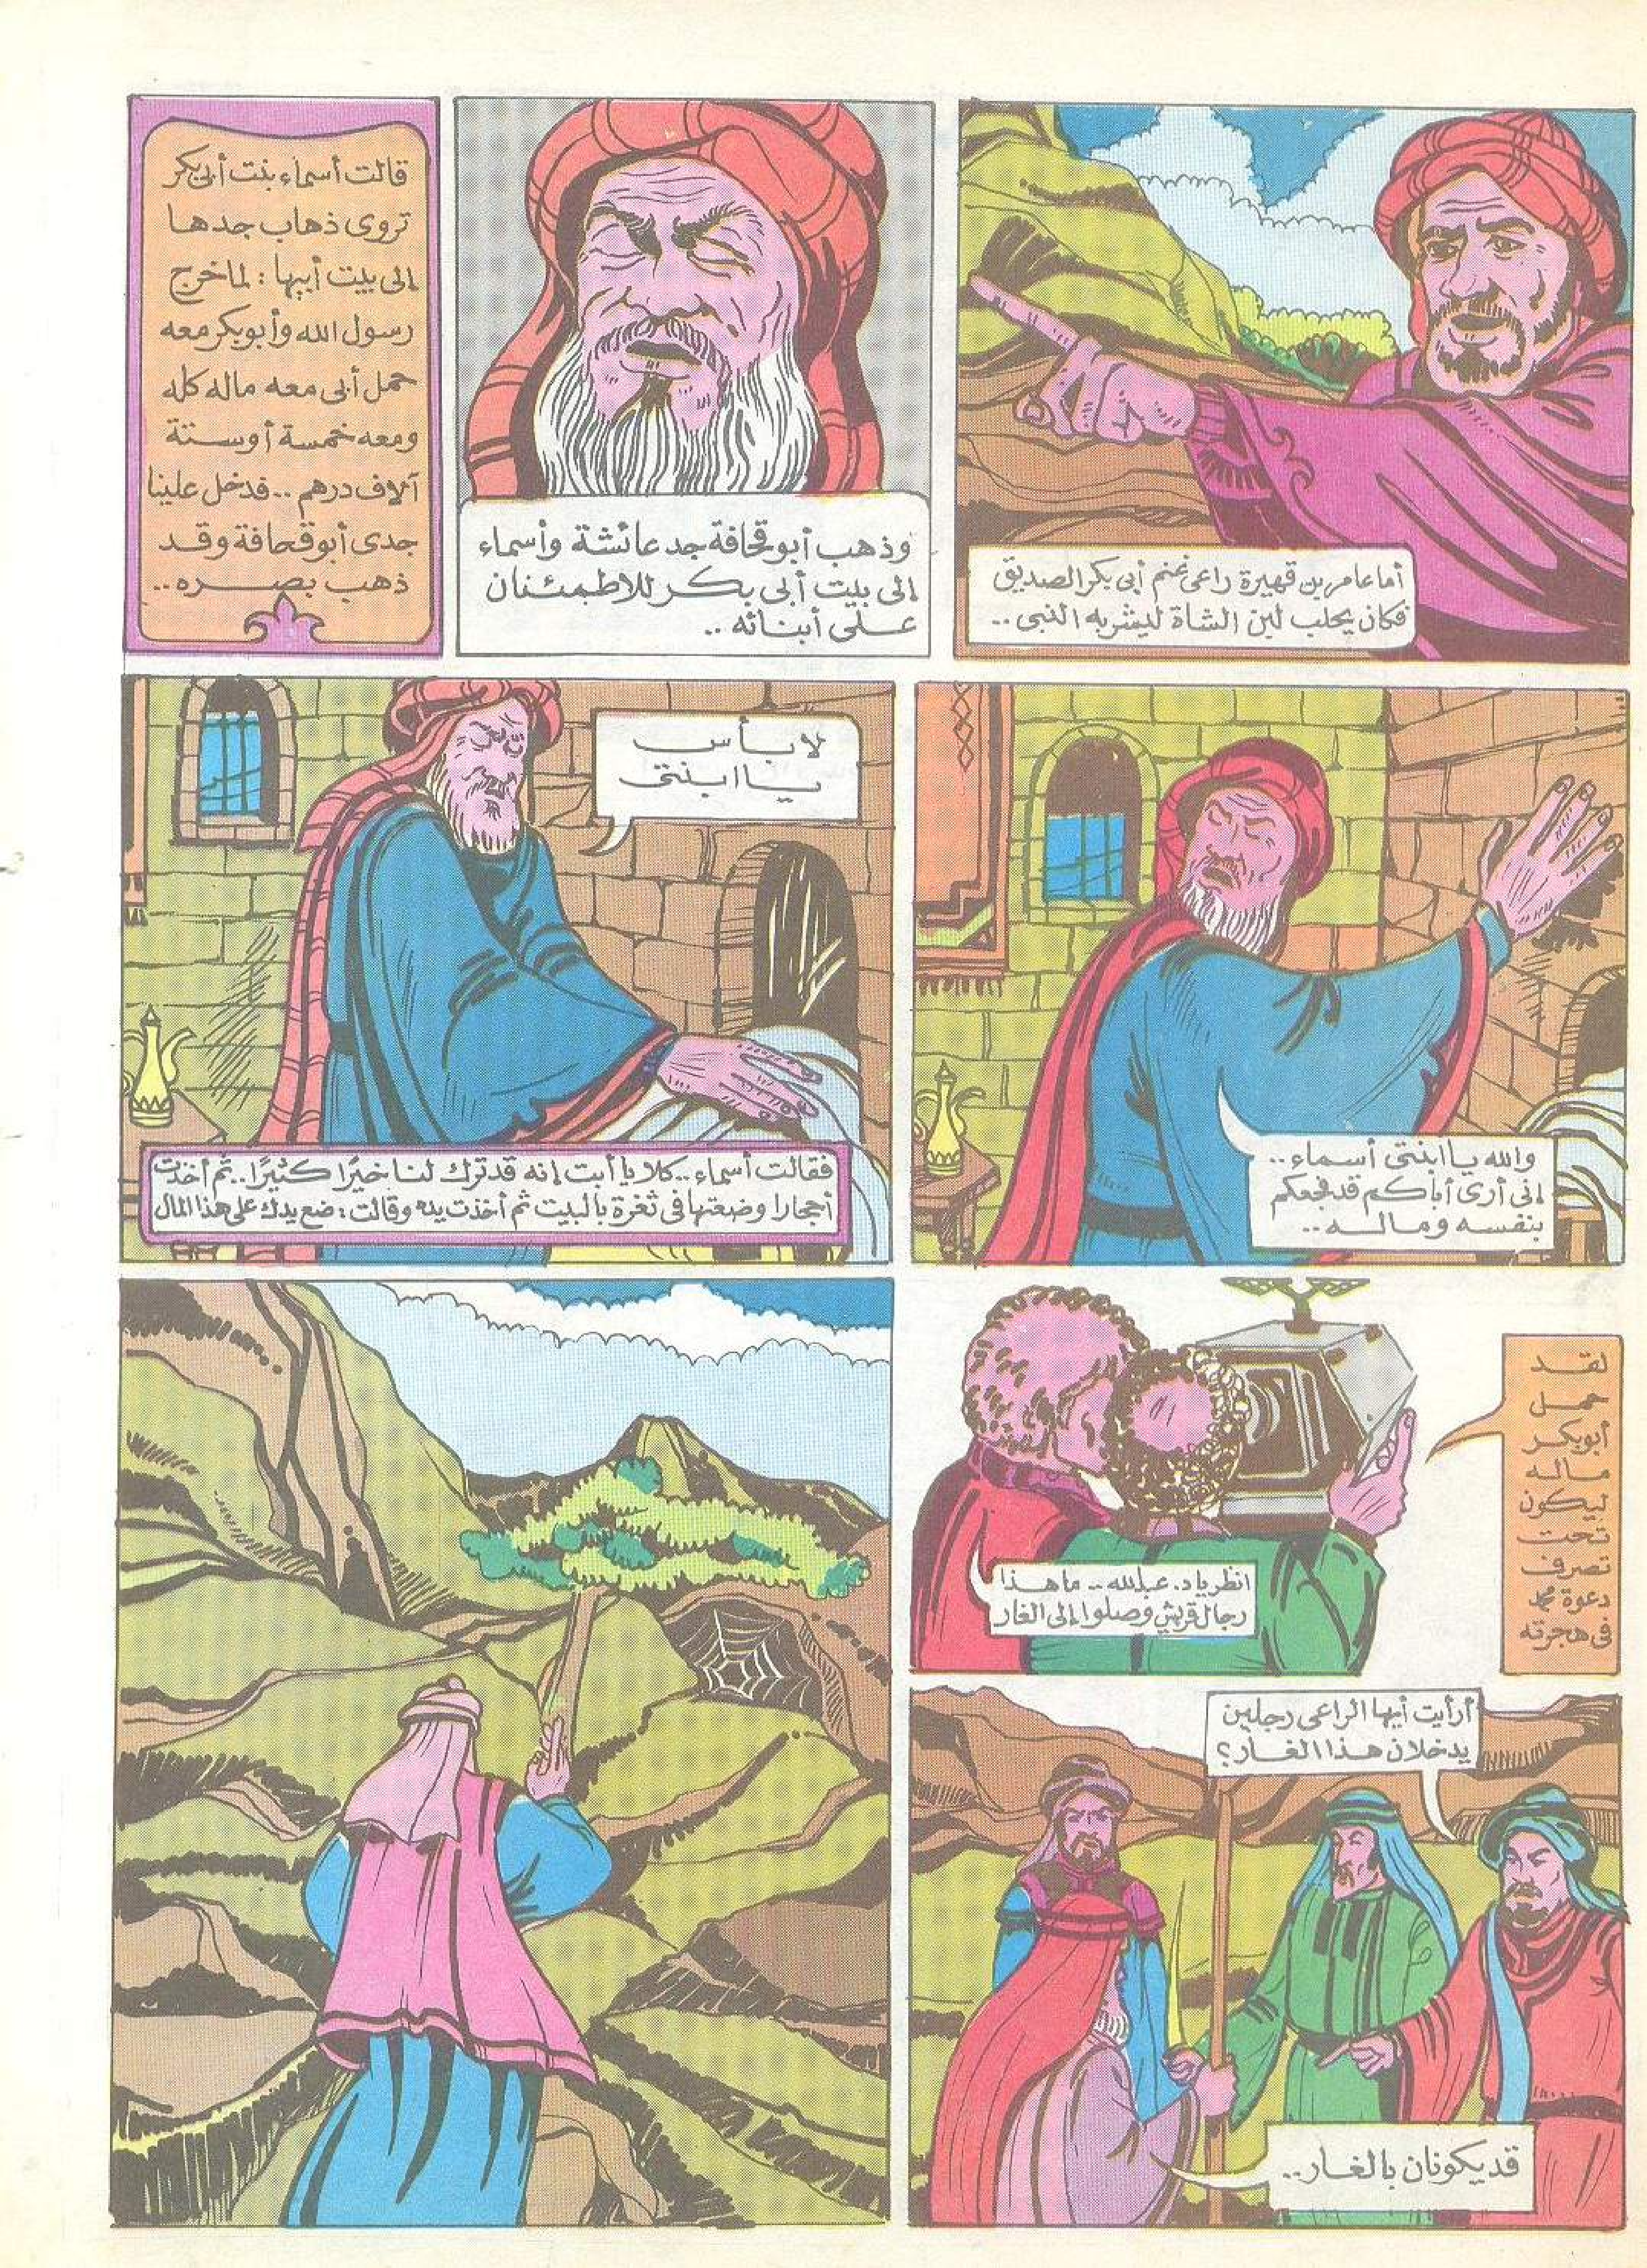 أما عامر بن قهيرة راعى غنم أبى بكر الصديق
فكان يحلب لبن الشاة ليشربه النبى ..
وذهب أبو قحافة جد عائشة وأسماء
إلى بيت أبى بكر للاطمئنان
على أبنائه ..
قالت أسماء بنت أبى بكر
تروى ذهاب جدها
إلى بيت أبيها : لما خرج
رسول الله وأبو بكر معه
حمل أبى معه ماله كله
ومعه خمسة أو ستة
آلاف درهم .. فدخل علينا
جدى أبو قحافة وقد
ذهب بصره ..
والله يا ابنتى أسماء ..
إنى أرى أباكم قد فجعكم
بنفسه وماله ..
لا بأس
يا ابنتى
فقالت أسماء .. كلا يا أبت إنه قد ترك لنا خيرًا كثيرًا .. ثم أخذت
أحجارا وضعتها فى ثغرة بالبيت ثم أخذت يده وقالت : ضع يدك على هذا المال
لقد
حمل
أبو بكر
ماله
ليكون
تحت
تصرف
دعوة محمد
فى هجرته
انظر يا د. عبدالله .. ما هذا
رجال قريش وصلوا إلى الغار
أرأيت أيها الراعى رجلين
يدخلان هذا الغار ؟
قد يكونان بالغار ..